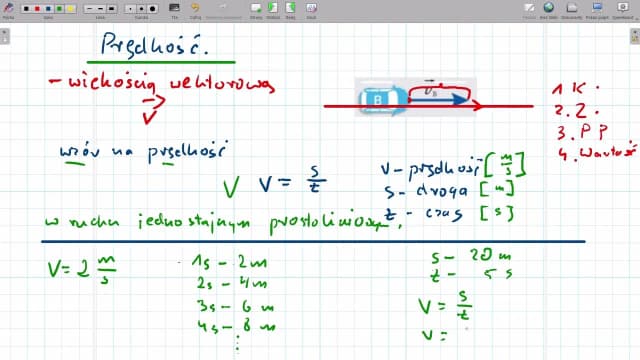 Prędkość.
- wielkością wektorową
V
B
v_B
1 K.
2. Z.
3. P P
4. Wartość
wzór na prędkość
V V = s/t
v - prędkość [m/s]
s - droga [m]
t - czas [s]
w ruchu jednostajnym prostoliniowym.
V = 2 m/s
1s - 2m
2s - 4m
3s - 6 m
4s - 8 m
⋮
s - 20 m
t - 5 s
V = s/t
V =